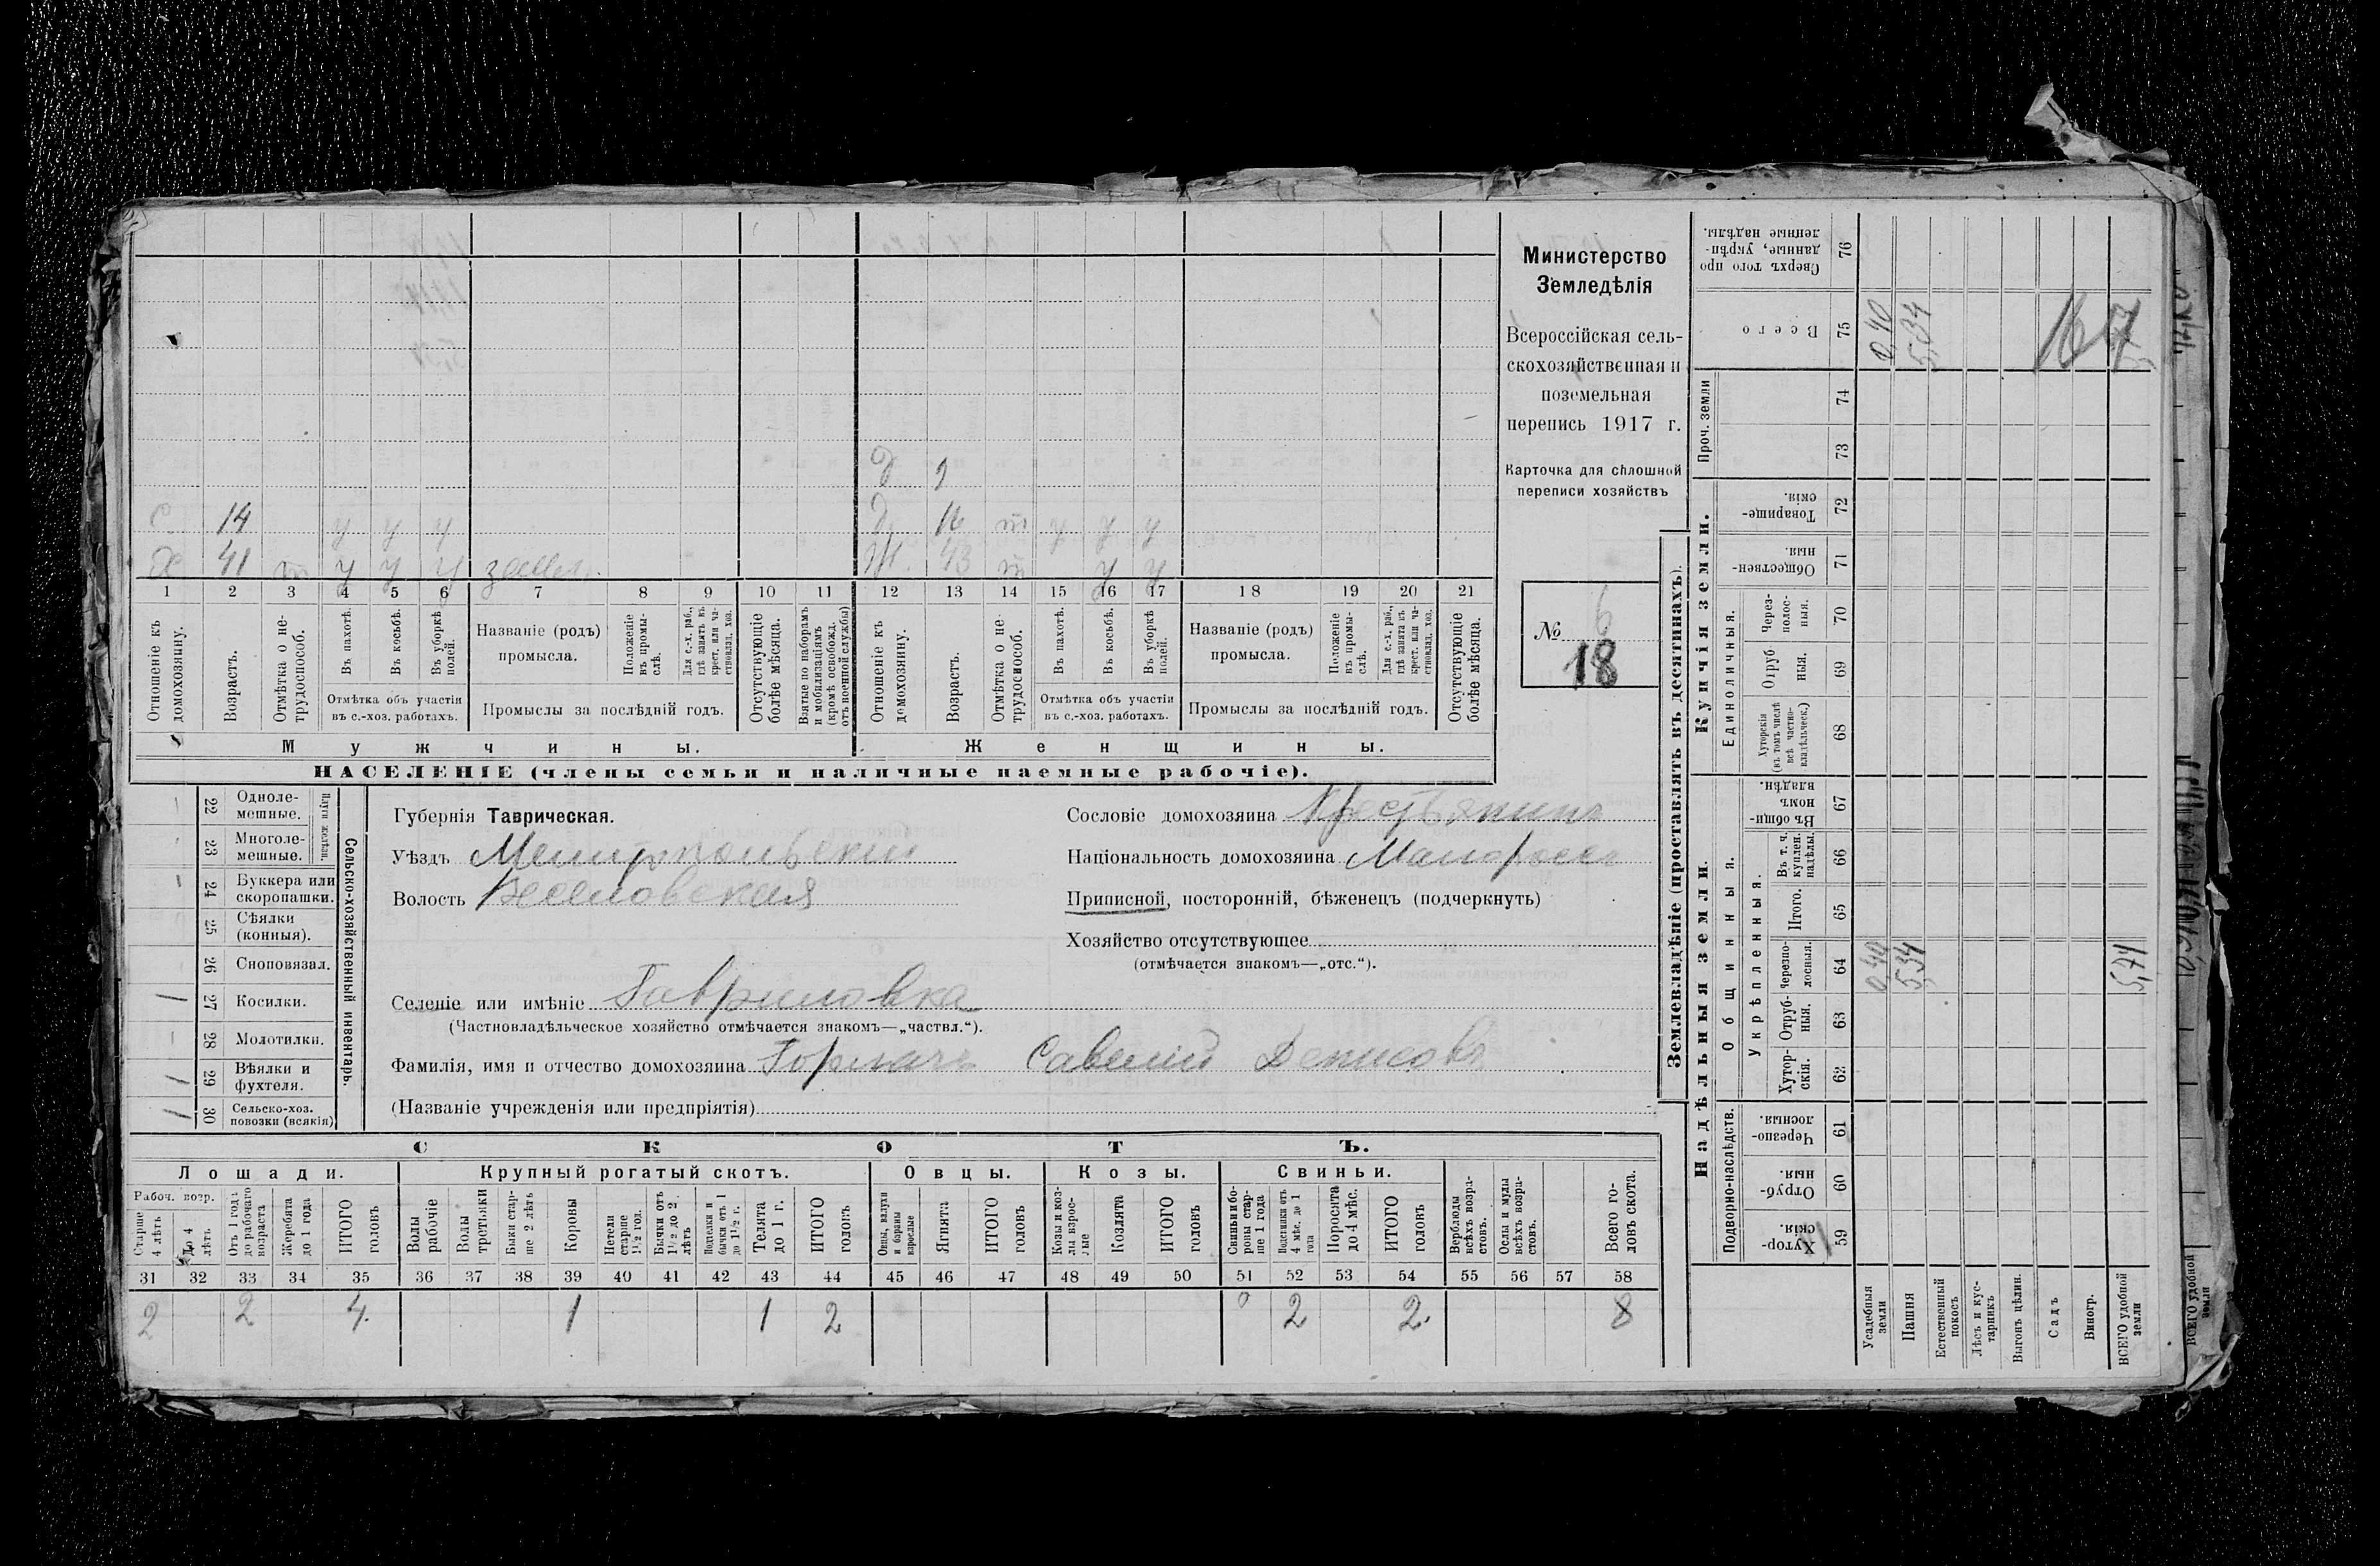 Министерство
Земледѣлія
Всероссійская сель-
скохозяйственная и
поземельная
перепись 1917 г.
Карточка для сплошной
переписи хозяйствъ
№ 6
18
д 9
с 14 у у у д. 12 т у у у
Х 41 т у у у Ж. 43 т у у
1 2 3 4 5 6 7 8 9 10 11 12 13 14 15 16 17 18 19 20 21
Отношеніе къ домохозяину.
Возрастъ.
Отмѣтка о не-трудоспособ.
Въ пахотѣ.
Въ косьбѣ.
Въ уборкѣ полей.
Отмѣтка объ участіи
въ с.-хоз. работахъ.
Названіе (родъ)
промысла.
Положеніе въ промы-слѣ.
Для с.-х. раб., гдѣ занятъ въ крест. или ча-стновлад. хоз.
Промыслы за послѣдній годъ.
Отсутствующіе болѣе мѣсяца.
Взятые по наборамъ и мобилизаціямъ (кромѣ освобожд. отъ военной службы)
Отношеніе къ домохозяину.
Возрастъ.
Отмѣтка о не-трудоспособ.
Въ пахотѣ.
Въ косьбѣ.
Въ уборкѣ полей.
Отмѣтка объ участіи
въ с.-хоз. работахъ.
Названіе (родъ)
промысла.
Положеніе въ промы-слѣ.
Для с.-х. раб., гдѣ занята въ крест. или ча-стновлад. хоз.
Промыслы за послѣдній годъ.
Отсутствующіе болѣе мѣсяца.
Мужчины. Женщины.
НАСЕЛЕНІЕ (члены семьи и наличные наемные рабочіе).
Сельско-хозяйственный инвентарь.
Плуги желѣзн.
22 Одноле-
мешные.
23 Многоле-
мешные.
24 Буккера или
скоропашки.
25 Сѣялки
(конныя).
26 Сноповязал.
1 27 Косилки.
28 Молотилки.
1 29 Вѣялки и
фухтеля.
1 30 Сельско-хоз.
повозки (всякія)
Губернія Таврическая.
Уѣздъ Мелитопольскій
Волость Веселовская
Селеніе или имѣніе Гавриловка
(Частновладѣльческое хозяйство отмѣчается знакомъ—„частвл.“).
Фамилія, имя и отчество домохозяина Горпачъ Савелій Денисовъ
(Названіе учрежденія или предпріятія)
Сословіе домохозяина Крестьянинъ
Національность домохозяина Малороссъ
Приписной, посторонній, бѣженецъ (подчеркнуть)
Хозяйство отсутствующее
(отмѣчается знакомъ—„отс.“).
СКОТЪ.
Лошади. Крупный рогатый скотъ. Овцы. Козы. Свиньи.
Рабоч. возр.
Старше 4 лѣтъ
До 4 лѣтъ
Отъ 1 года до рабочаго возраста
Жеребята до 1 года
ИТОГО головъ
Волы рабочіе
Волы третьяки
Быки стар-ше 2 лѣтъ
Коровы
Нетели старше 1½ год.
Бычки отъ 1½ до 2 лѣтъ
Подтелки и бычки отъ 1 до 1½ г.
Телята до 1 г.
ИТОГО головъ
Овцы, валухи и бараны взрослые
Ягнята
ИТОГО головъ
Козы и коз-лы взрос-лые
Козлята
ИТОГО головъ
Свиньи и бо-ровы стар-ше 1 года
Подсвинки отъ 4 мѣс. до 1 года
Поросята до 4 мѣс.
ИТОГО головъ
Верблюды всѣхъ возра-стовъ.
Ослы и мулы всѣхъ возра-стовъ.
Всего го-ловъ скота.
31 32 33 34 35 36 37 38 39 40 41 42 43 44 45 46 47 48 49 50 51 52 53 54 55 56 57 58
2 2 4 1 1 2 2 2 8
Землевладѣніе (проставлять въ десятинахъ).
Надѣльныя земли. Купчія земли. Проч. земли
Подворно-наслѣдств.
Общинныя.
Укрѣпленныя.
Единоличныя.
Хутор-скія. 59
Отруб-ныя. 60
Черезпо-лосныя. 61
Хутор-скія. 62
Отруб-ныя. 63
Черезпо-лосныя. 64
Итого. 65
Въ т. ч. куплен. надѣлы. 66
Въ общи-номъ владѣн. 67
Хуторскія (въ томъ числѣ всѣ частно-владѣльческ.) 68
Отруб ныя. 69
Через-полос-ныя. 70
Обществен-ныя. 71
Товарище-скія. 72
73
74
Всего 75
Сверхъ того про данные, укрѣп-ленные надѣлы. 76
Усадебныя земли 0,40 0,40
Пашня 5,34 5,34
Естественный покосъ
Лѣсъ и кус-тарникъ
Выгонъ цѣлин.
Садъ
Виногр.
ВСЕГО удобной земли 5,74
ВСЕГО удобной земли